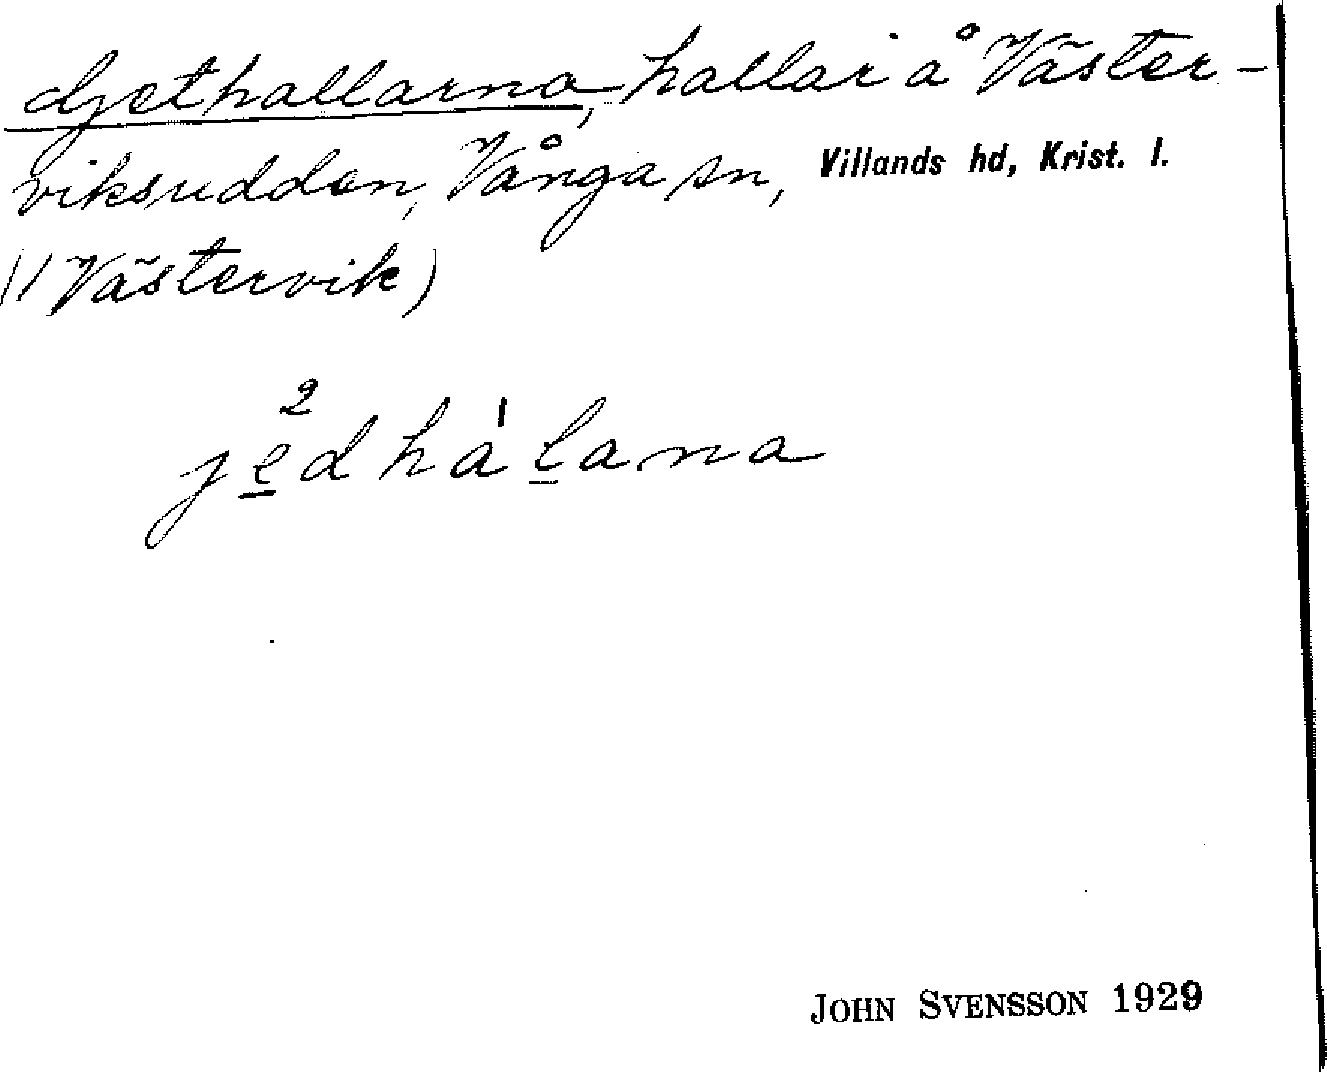 Gethallarna, hallar å Väster-
viksudden, Vånga sn, Villands hd, Krist. l.
(1 Västervik)
2
jedhálana
JOHN SVENSSON 1929